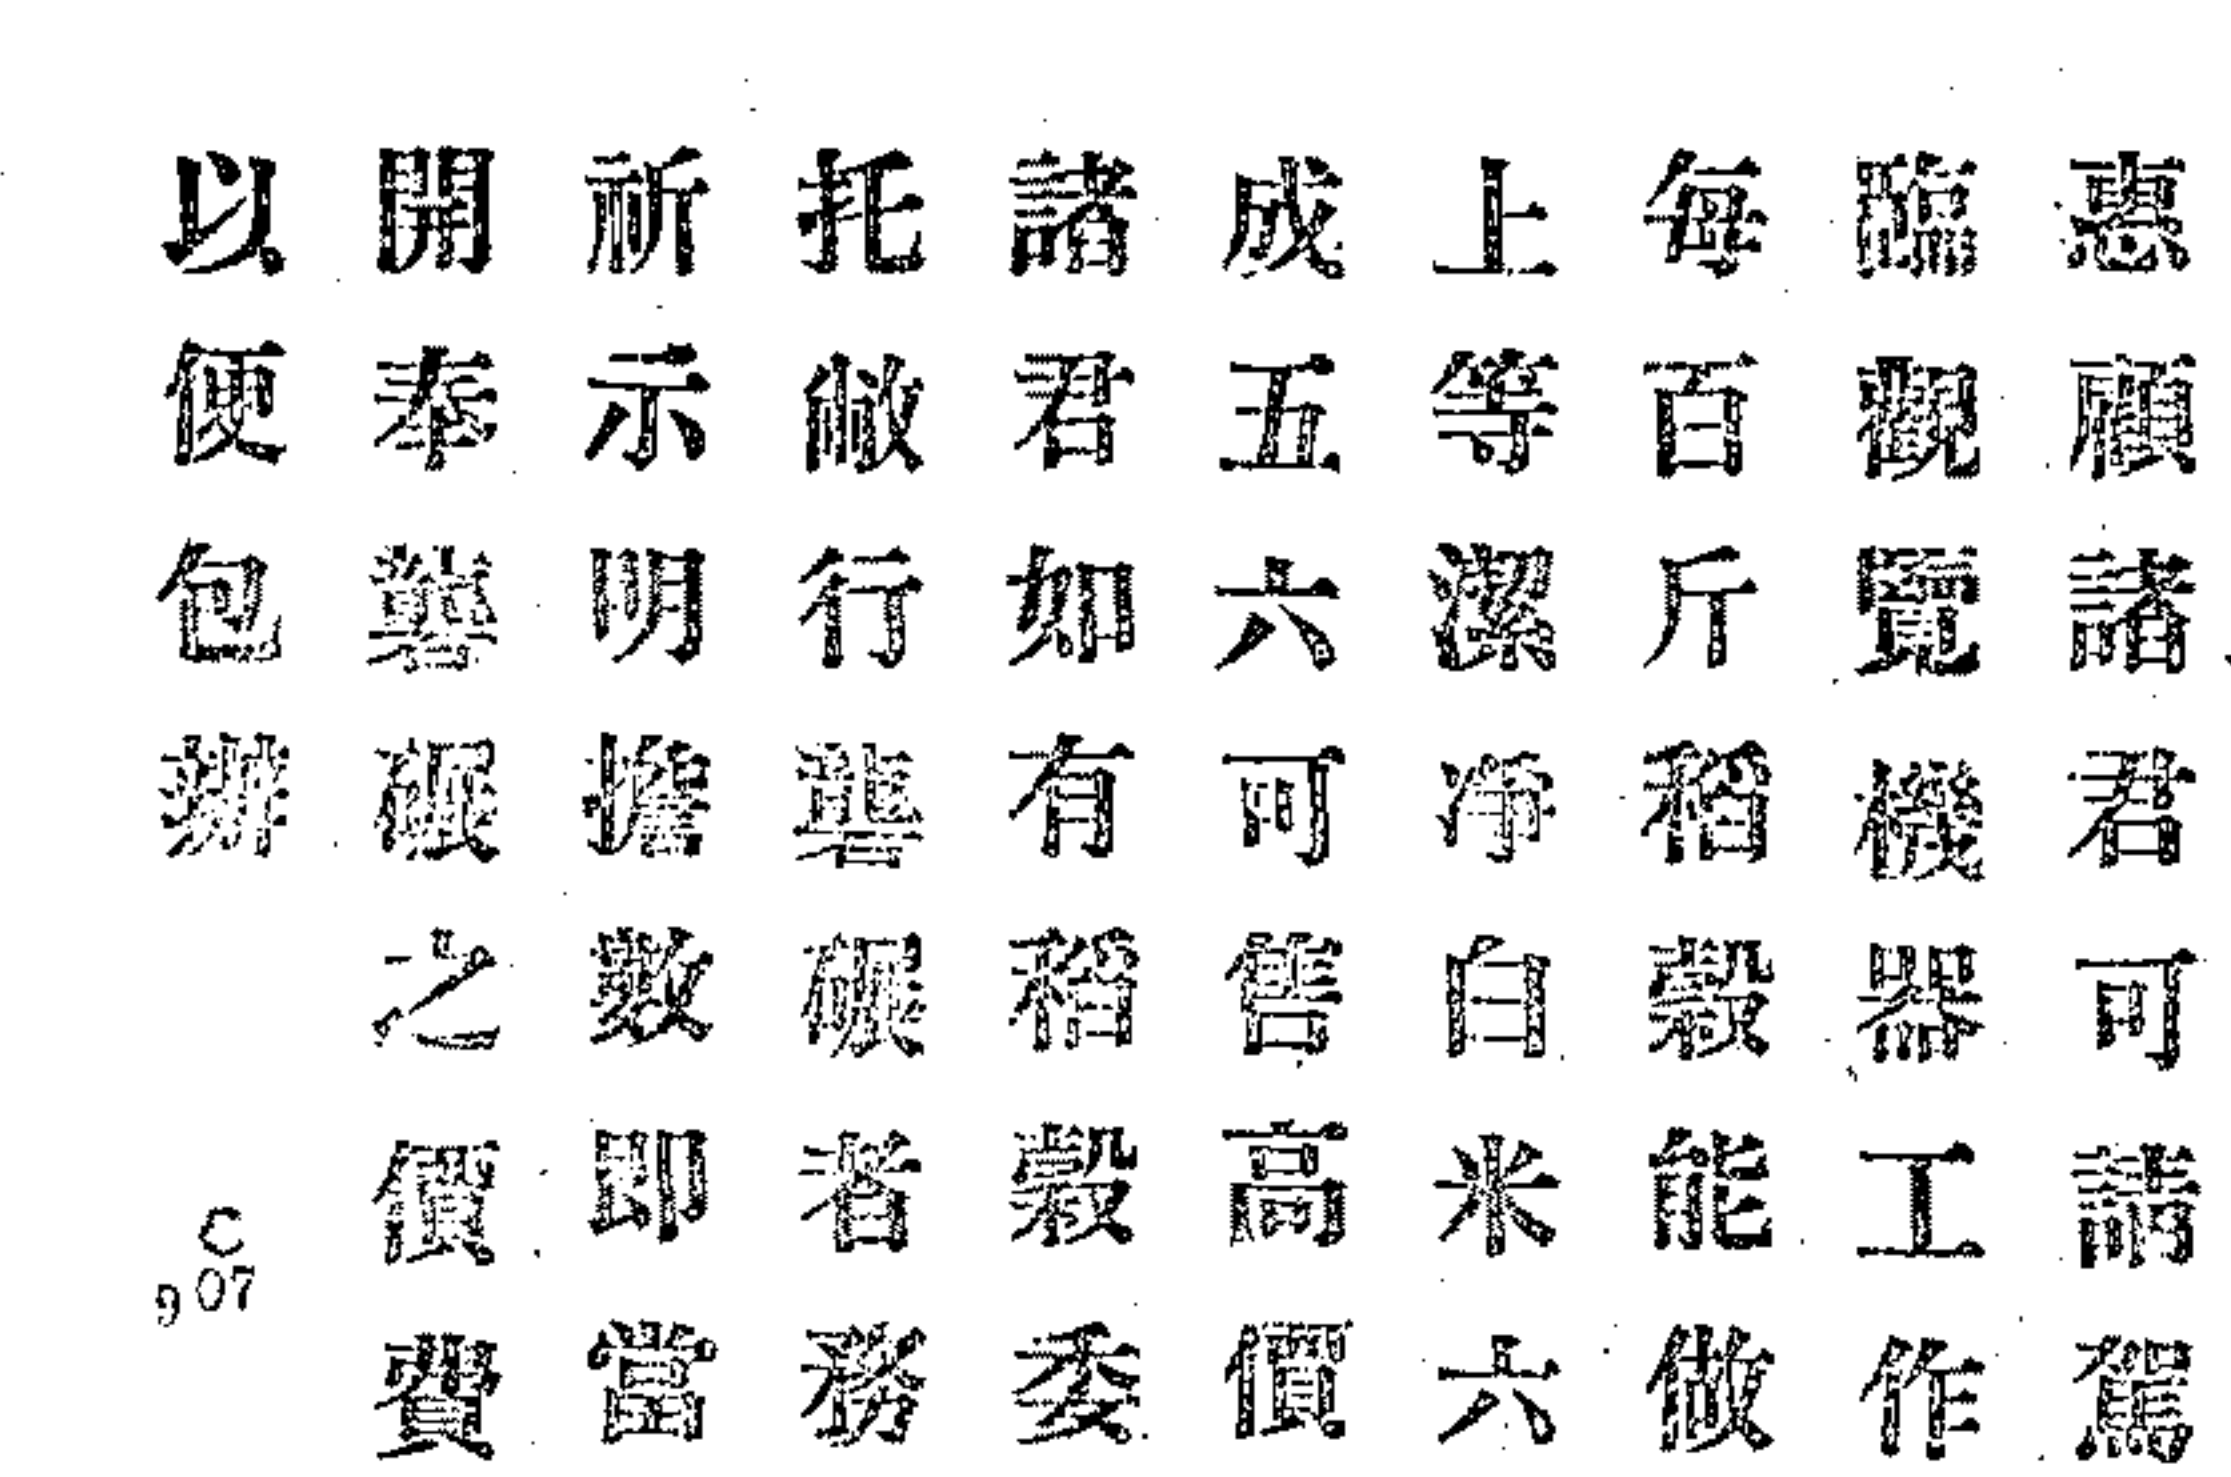 惠顧諸君可請駕
臨觀覽機器工作
每百斤稻穀能做
上等潔淨白米六
成五六可售高價
諸君如有稻穀委
托敝行礱碾者務
祈示明擔數即當
開奉礱碾之價費
以便包辦
C
907